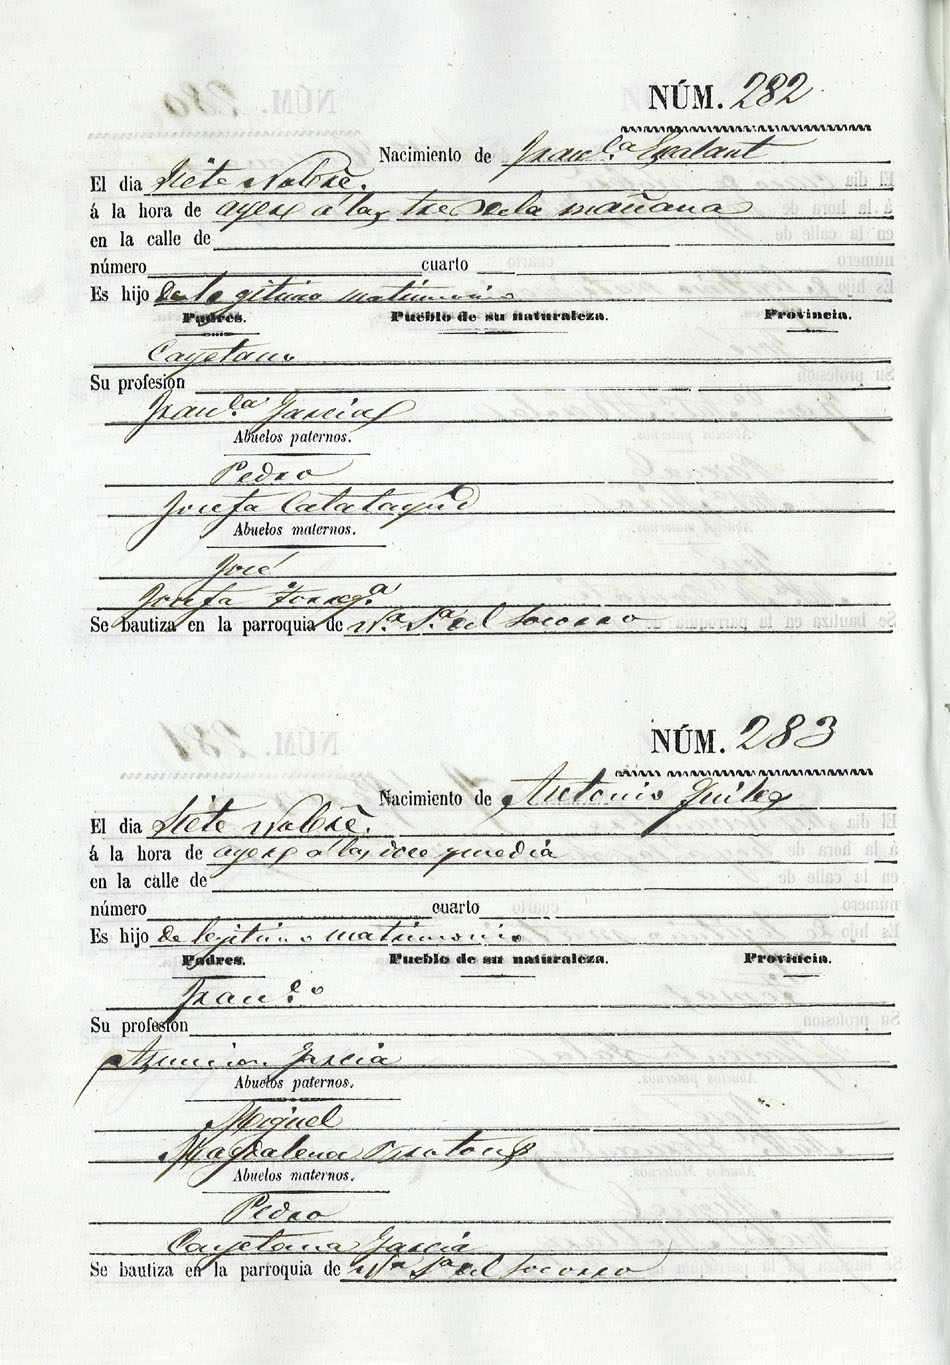 NÚM. 282
Nacimiento de Fran.ca Galant
El dia Siete Nobre.
á la hora de ayer á las tres de la mañana
en la calle de
número cuarto
Es hijo de legitimo matrimonio
Padres. Pueblo de su naturaleza. Provincia.
Cayetano
Su profesion
Fran.ca Garcia
Abuelos paternos.
Pedro
Josefa Calatayud
Abuelos maternos.
José
Josefa Torreg.a
Se bautiza en la parroquia de Na. Sa. del Socorro
NÚM. 283
Nacimiento de Antonio Quiles
El dia Siete Nobre.
á la hora de ayer á las doce y media
en la calle de
número cuarto
Es hijo de legitimo matrimonio
Padres. Pueblo de su naturaleza. Provincia.
Fran.co
Su profesion
Asuncion Garcia
Abuelos paternos.
Miguel
Magdalena
Abuelos maternos.
Pedro
Cayetana Garcia
Se bautiza en la parroquia de Na. Sa. del Socorro